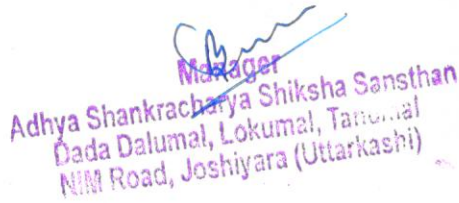 Manager
Adhya Shankracharya Shiksha Sansthan
Dada Dalumal, Lokumal,
NIM Road, Joshiyara (Uttarkashi)